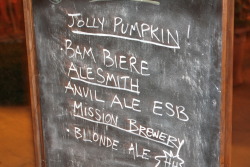 JOLLY PUMPKIN!
• BAM BIERE
ALESMITH
ANVIL ALE ESB
MISSION BREWERY
• BLONDE ALE